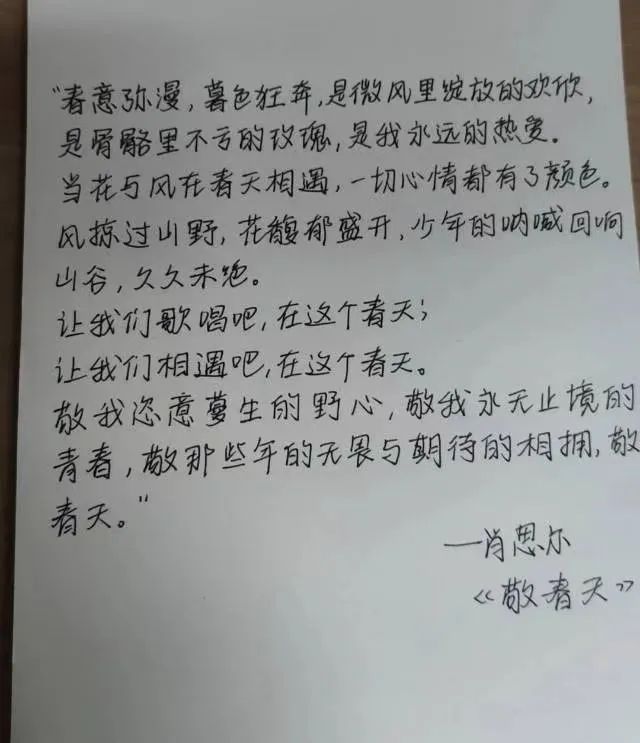 “春意弥漫，暮色狂奔，是微风里绽放的欢欣，
是骨骼里不亏的玫瑰，是我永远的热爱。
当花与风在春天相遇，一切心情都有了颜色。
风掠过山野，花馥郁盛开，少年的呐喊回响
山谷，久久未绝。
让我们歌唱吧，在这个春天；
让我们相遇吧，在这个春天。
敬我恣意蔓生的野心，敬我永无止境的
青春，敬那些年的无畏与期待的相拥，敬
春天。”
—肖思尔
《敬春天》